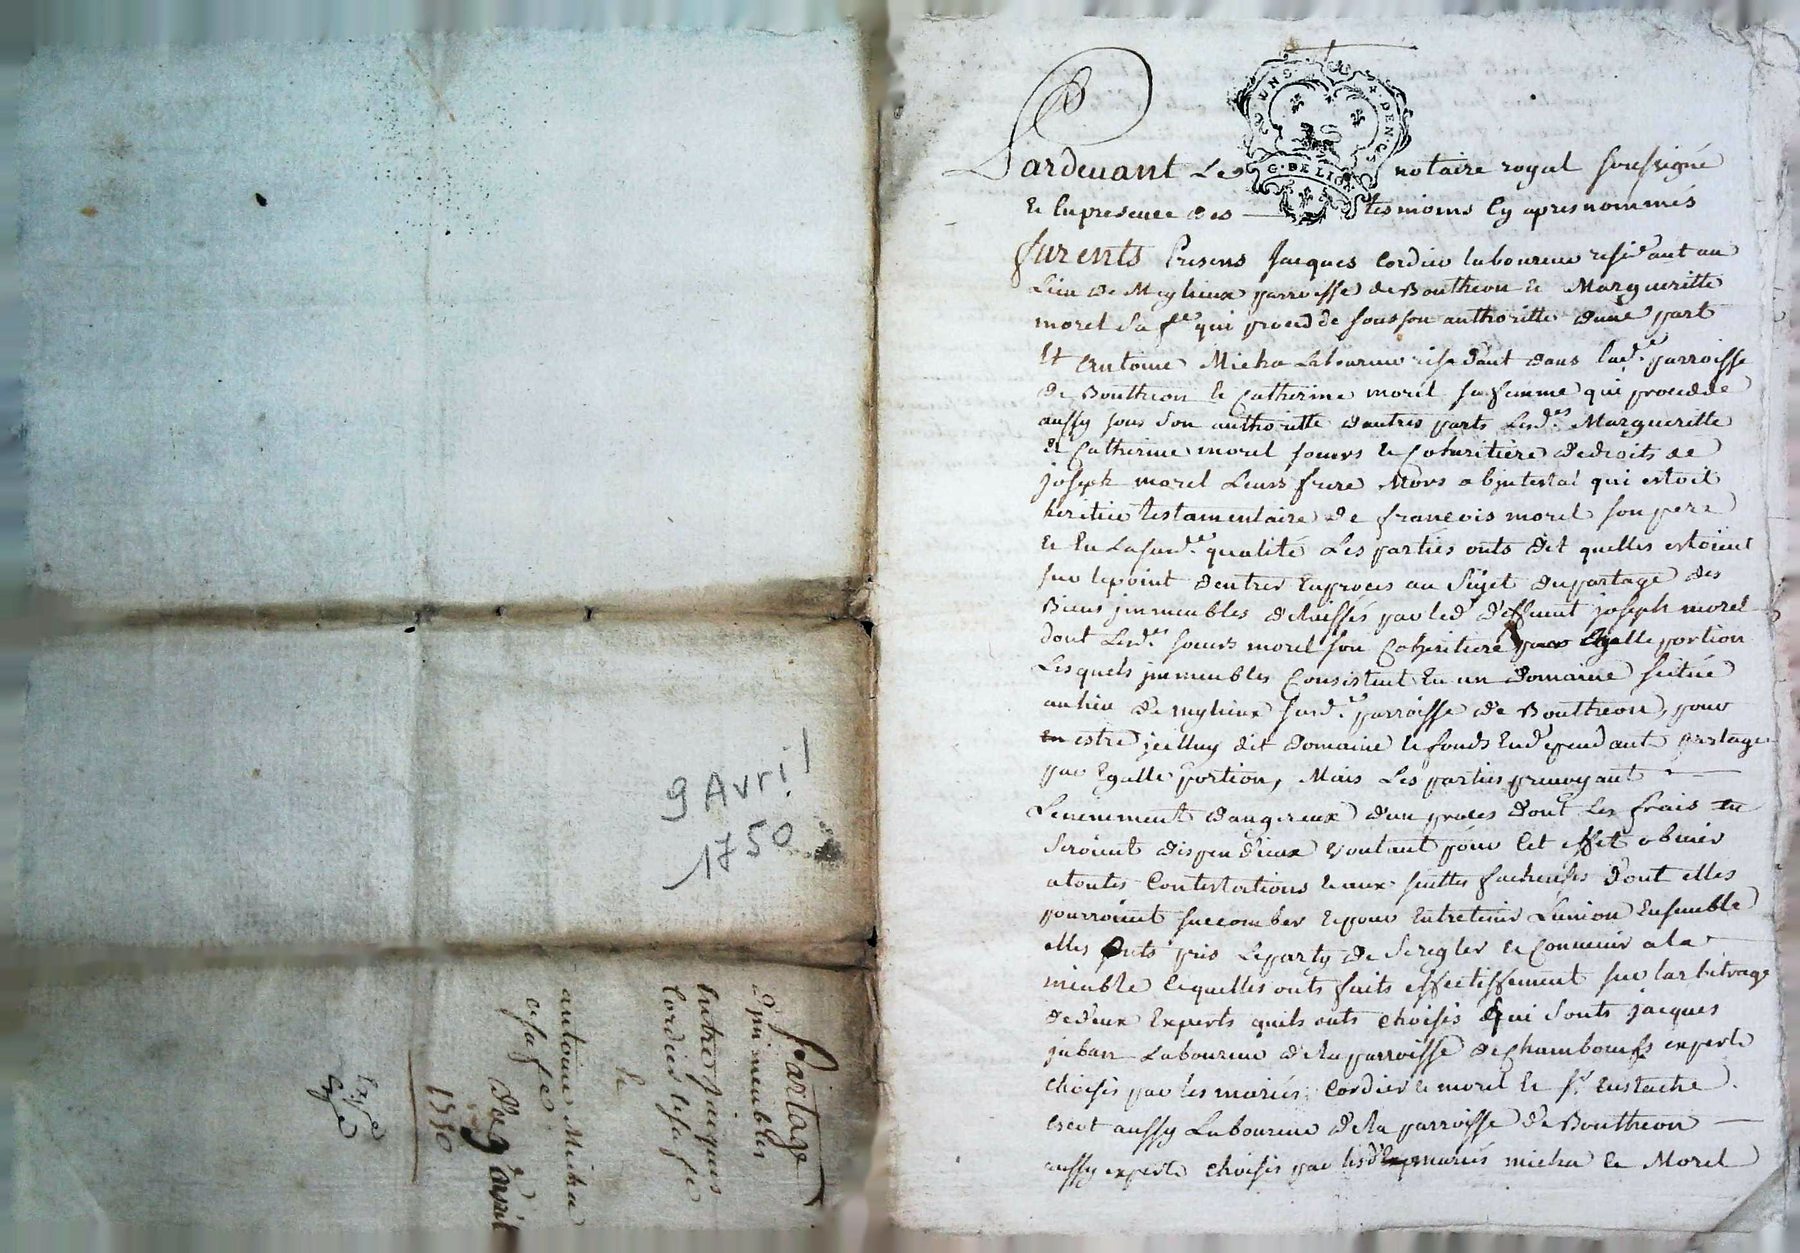 9 Avril
1750
Partage
d'immeubles
Entre Jacques
Cordier & sa fe
&
antoine Micha
& sa fe.
du 9e avril
1750
G. DE LION
Pardevant Le notaire royal soussigné
& En presence des tesmoins Cy apres nommés
furents Presens Jacques Cordier laboureur residant au
Lieu de Meylieux parroisse de Boutheon & Margueritte
morel sa fe qui procedde sous son authoritte d'une part
Et Antoine Micha Laboureur residant dans lade. parroisse
de Boutheon & Catherine morel sa femme qui procedde
aussy sous son authoritte d'autres parts Lesdes. Margueritte
& Catherine morel soeurs & Coheritiere de droits de
joseph morel Leurs frere Mors abjntestat qui estoit
heritier testamentaire de francois morel son pere
& En Lasusde qualité Les parties onts dit quelles estoient
sur lepoint dentrer Enproces au Sujet du partage des
Biens jmmeubles delaissés par led. deffunt joseph morel
dont Lesdes soeurs morel son Coheritiere pour Egalle portion
Lesquels jmmeubles Consistent En un Domaine scitué
au lieu de meylieux susde. parroisse de Boutheon, pour
estre jcelluy dit Domaine & fonds Endependant partage
par Egalle portion, Mais Les parties prevoyant
Levenement dangereux d'un proces dont Les frais
seroient dispendieux voulant pour Cet effet obvier
atoutes Contestations & aux suittes facheuses dont elles
pourroient succomber & pour Entretenir L'union Ensemble
elles onts pris Leparty de Seregler & Convenir ala
miable & quelles onts faits effectiffement sur larbitrage
de deux Experts quils onts choisis qui sonts jacques
juban Laboureur dela parroisse de Chamboeuf experts
choisis par les mariés Cordier & morel & sr. Eustache
aussy Laboureur dela parroisse de Boutheon
aussy experts choisis par lesd mariés micha & Morel